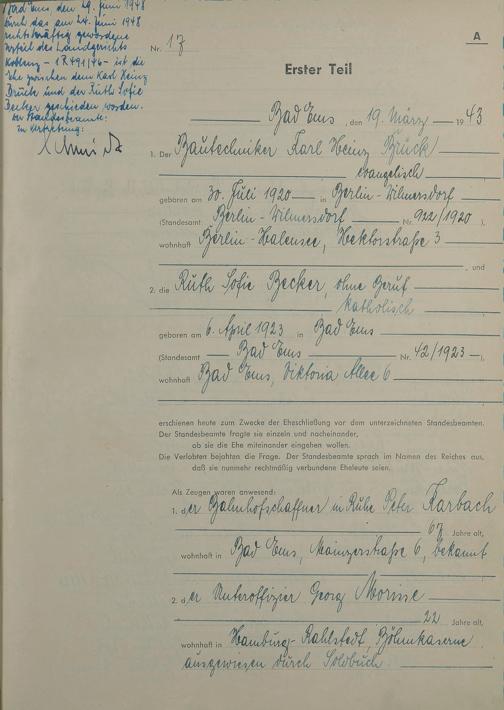 Bad Ems, den 29. Juni 1948
Durch das am 24. Juni 1948
rechtskräftig gewordene
Urteil des Landgerichts
Koblenz – 1 R 491/46 – ist die
Ehe zwischen dem Karl Heinz
Brück und der Ruth Sofie
Becker geschieden worden.
Der Standesbeamte:
In Vertretung:
Nr. 17
A
Erster Teil
Bad Ems, den 19. März 1943
1. Der Bautechniker Karl Heinz Brück
evangelisch
geboren am 30. Juli 1920 in Berlin-Wilmersdorf
(Standesamt Berlin-Wilmersdorf Nr. 922/1920).
wohnhaft Berlin-Halensee, Hektorstraße 3
, und
2. die Ruth Sofie Becker, ohne Beruf
katholisch
geboren am 6. April 1923 in Bad Ems
(Standesamt Bad Ems Nr. 42/1923).
wohnhaft Bad Ems, Viktoria Allee 6
erschienen heute zum Zwecke der Eheschließung vor dem unterzeichneten Standesbeamten.
Der Standesbeamte fragte sie einzeln und nacheinander,
ob sie die Ehe miteinander eingehen wollen.
Die Verlobten bejahten die Frage. Der Standesbeamte sprach im Namen des Reiches aus,
daß sie nunmehr rechtmäßig verbundene Eheleute seien.
Als Zeugen waren anwesend:
1. der Bahnhofschaffner in Ruhe Peter Karbach
67 Jahre alt,
wohnhaft in Bad Ems, Mainzerstraße 6, bekannt
2. der Unteroffizier Georg
22 Jahre alt,
wohnhaft in Hamburg-Rahlstedt, Böhmkaserne
ausgewiesen durch Soldbuch